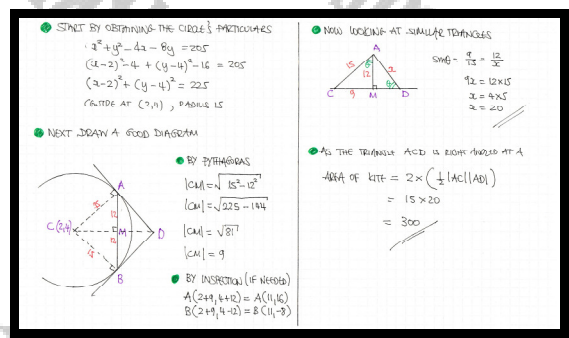 START BY OBTAINING THE CIRCLE'S PARTICULARS
x² + y² - 4x - 8y = 205
(x-2)² - 4 + (y-4)² - 16 = 205
(x-2)² + (y-4)² = 225
CENTRE AT (2,4), RADIUS 15
NEXT DRAW A GOOD DIAGRAM
A
15
12
C(2,4)
M
D
12
15
B
BY PYTHAGORAS
|CM| = √15² - 12²
|CM| = √225 - 144
|CM| = √81
|CM| = 9
BY INSPECTION (IF NEEDED)
A(2+9, 4+12) = A(11,16)
B(2+9, 4-12) = B(11,-8)
NOW LOOKING AT SIMILAR TRIANGLES
A
15
θ
12
x
θ
C
9
M
D
sinθ = 9/15 = 12/x
9x = 12×15
x = 4×5
x = 20
AS THE TRIANGLE ACD IS RIGHT ANGLED AT A
AREA OF KITE = 2 × (1/2 |AC||AD|)
= 15 × 20
= 300